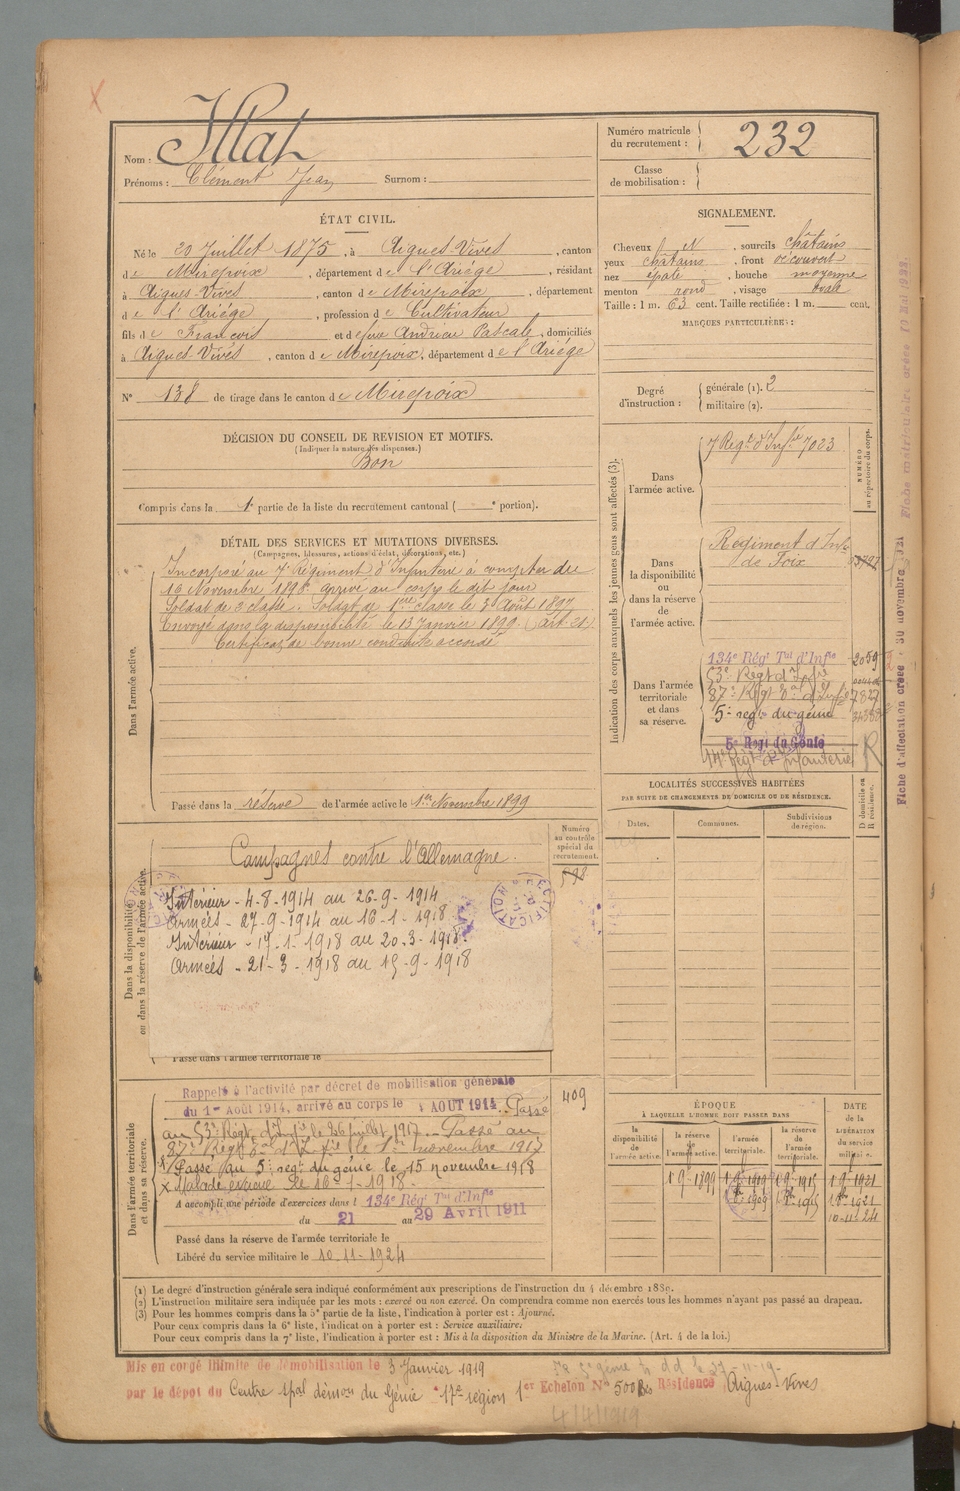 Nom :
Prénoms : Clément Jean Surnom :
Numéro matricule du recrutement : 232
Classe de mobilisation :
ÉTAT CIVIL.
Né le 20 Juillet 1875, à Aigues-Vives, canton
de Mirepoix, département de l'Ariège, résidant
à Aigues-Vives, canton de Mirepoix, département
de l'Ariège, profession de Cultivateur
fils de François et de feue Andrieu Pascale, domiciliés
à Aigues-Vives, canton de Mirepoix, département de l'Ariège
N° 138 de tirage dans le canton de Mirepoix
SIGNALEMENT.
Cheveux N, sourcils châtains
yeux châtains, front découvert
nez épaté, bouche moyenne
menton rond, visage ovale
Taille : 1 m. 63 cent. Taille rectifiée : 1 m. cent.
MARQUES PARTICULIÈRES :
Degré d'instruction : générale (1). 2
militaire (2).
DÉCISION DU CONSEIL DE REVISION ET MOTIFS.
(Indiquer la nature des dispenses.)
Bon
Compris dans la 1e partie de la liste du recrutement cantonal ( e portion).
DÉTAIL DES SERVICES ET MUTATIONS DIVERSES.
(Campagnes, blessures, actions d'éclat, décorations, etc.)
Dans l'armée active.
Incorporé au 7e Régiment d'Infanterie à compter du
Novembre arrivé au corps le dit jour
Soldat de 2e classe. Soldat de 1ère classe le 3 Août 1897
Envoyé dans la disponibilité le 13 Janvier (art. 21)
Certificat de bonne conduite accordé
Passé dans la réserve de l'armée active le 1er Novembre 1899
Indication des corps auxquels les jeunes gens sont affectés (3).
NUMÉRO au répertoire du corps.
Dans l'armée active.
7 Regt d'Infie 7023
Dans la disponibilité ou dans la réserve de l'armée active.
Régiment d'Inf. de Foix
Dans l'armée territoriale et dans sa réserve.
134e Régt Tal d'Infie 2059
53e Regt d'Infie
87e Régt d'Inf 7827
5e regt du génie
5e Regt du Génie
Régt d'Infanterie
R
Fiche d'affectation créée 30 novembre
Fiche matriculaire créée 10 Mai 1922.
LOCALITÉS SUCCESSIVES HABITÉES
PAR SUITE DE CHANGEMENTS DE DOMICILE OU DE RÉSIDENCE.
Dates. Communes. Subdivisions de région. D domicile ou R résidence.
Dans la disponibilité ou dans la réserve de l'armée active.
Numéro au contrôle spécial du recrutement.
Campagnes contre l'Allemagne.
Intérieur - 4-8-1914 au 26-9-1914
Armées - 27-9-1914 au 16-1-1918
Intérieur - 17-1-1918 au 20-3-1918
Armées - 21-3-1918 au 15-9-1918
Passé dans l'armée territoriale le
Dans l'armée territoriale et dans sa réserve.
409
Rappelé à l'activité par décret de mobilisation générale
du 1er Août 1914, arrivé au corps le AOUT 1914. Passé
au 53e Régt d'Infie le 26 juillet 1917. Passé au
87e Régt d'Infie le 1er novembre 1917
Passé au 5e regt du génie le 15 novembre 1918
x Malade évacué le
A accompli une période d'exercices dans l 134e Régt Tal d'Infie
du 21 au 29 Avril 1911
Passé dans la réserve de l'armée territoriale le
Libéré du service militaire le 10-11-1924
ÉPOQUE
À LAQUELLE L'HOMME DOIT PASSER DANS
DATE DE LA LIBÉRATION du service militaire.
la disponibilité de l'armée active. la réserve de l'armée active. l'armée territoriale. la réserve de l'armée territoriale.
1-9-1899 1-9-1909 1-9-1915 1-9-1921
10-11-24
(1) Le degré d'instruction générale sera indiqué conformément aux prescriptions de l'instruction du 4 décembre 1889.
(2) L'instruction militaire sera indiquée par les mots : exercé ou non exercé. On comprendra comme non exercés tous les hommes n'ayant pas passé au drapeau.
(3) Pour les hommes compris dans la 5e partie de la liste, l'indication à porter est : Ajourné.
Pour ceux compris dans la 6e liste, l'indication à porter est : Service auxiliaire.
Pour ceux compris dans la 7e liste, l'indication à porter est : Mis à la disposition du Ministre de la Marine. (Art. 4 de la loi.)
Mis en congé illimité de démobilisation le 3 Janvier 1919
par le dépôt du Centre démou du Génie 17e région 1er Echelon N° 500 Bis Résidence Aigues-Vives